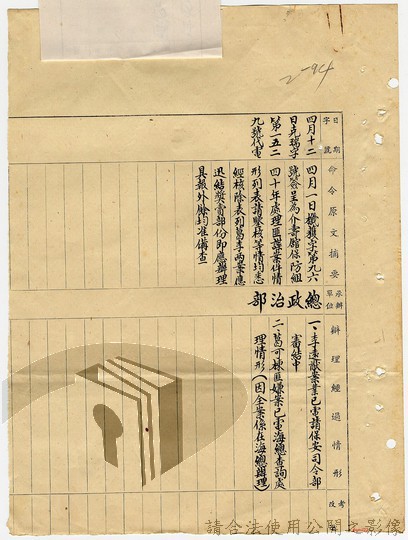 2-94
日期
字號
四月十二
日克瑞字
第一五二
九號代電
命令原文摘要
四月一日機獲字第九六
號簽呈為介壽館保防組
四十年處理匪諜案件情
形列表請鑒核等情均悉
經核除表列葛李兩案應
迅結獎賞部份即應辦理
具報外餘均准備查
承辦單位
總政治部
辦理經過情形
一、李遠猷案業已電請保安司令部
審結中
二、葛可棟匪嫌案已電海總查詢處
理情形(因全案係在海總辦理)
考
改
請合法使用公開之影像